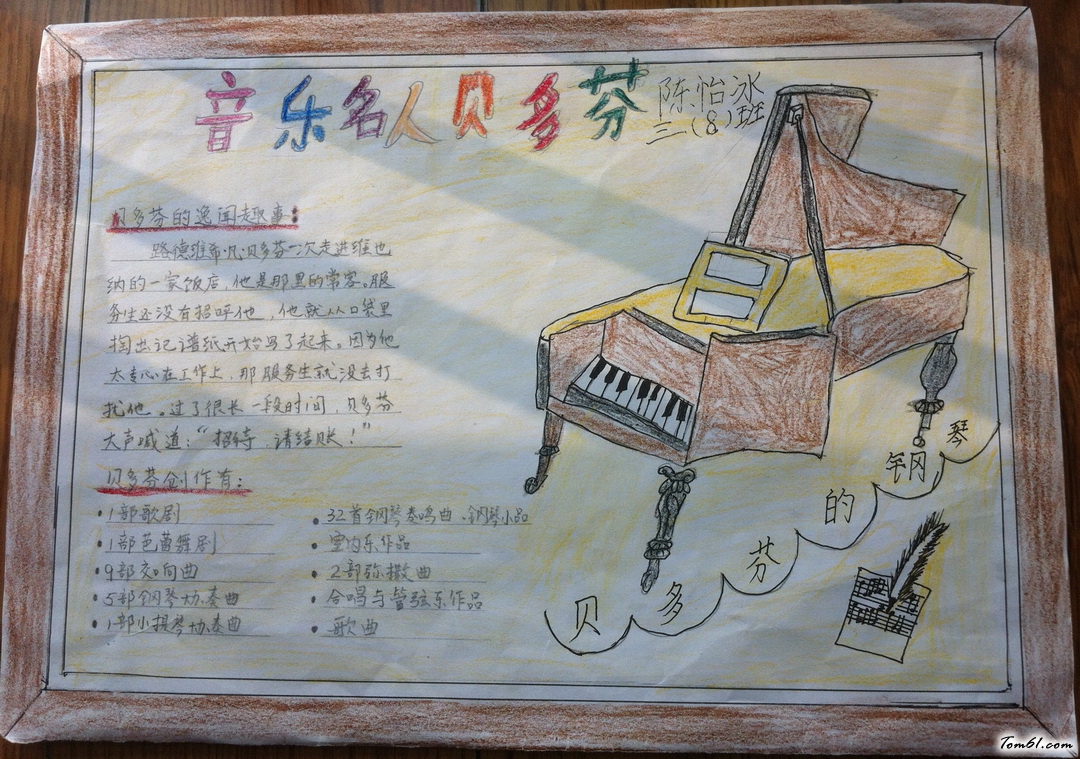 音乐名人贝多芬
陈怡冰
三(8)班
贝多芬的逸闻趣事:
路德维希·凡·贝多芬一次走进维也
纳的一家饭店,他是那里的常客。服
务生还没有招呼他,他就从口袋里
掏出记谱纸开始写了起来。因为他
太专心在工作上,那服务生就没去打
扰他。过了很长一段时间,贝多芬
大声喊道:“招待,请结账!”
贝多芬创作有:
·1部歌剧
·1部芭蕾舞剧
·9部交响曲
·5部钢琴协奏曲
·1部小提琴协奏曲
·32首钢琴奏鸣曲、钢琴小品
·室内乐作品
·2部弥撒曲
·合唱与管弦乐作品
·歌曲
贝多芬的钢琴
Tom61.com